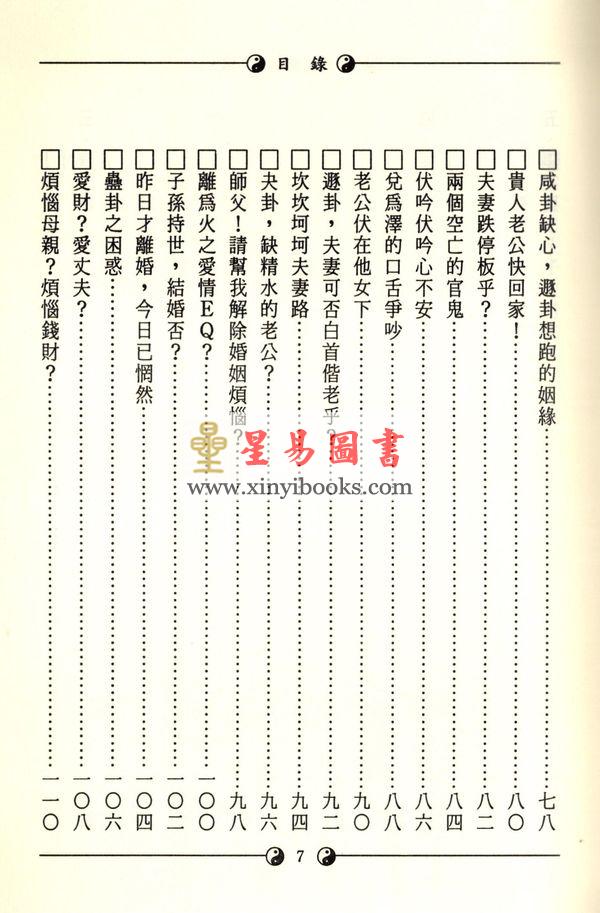 目錄
□咸卦缺心，遯卦想跑的姻緣……七八
□貴人老公快回家！……八〇
□夫妻跌停板乎？……八二
□兩個空亡的官鬼……八四
□伏吟伏吟心不安……八六
□兌爲澤的口舌爭吵……八八
□老公伏在他女下……九〇
□遯卦，夫妻可否白首偕老乎？……九二
□坎坎坷坷夫妻路……九四
□夬卦，缺精水的老公？……九六
□師父！請幫我解除婚姻煩惱？……九八
□離爲火之愛情EQ？……一〇〇
□子孫持世，結婚否？……一〇二
□昨日才離婚，今日已惘然……一〇四
□蠱卦之困惑……一〇六
□愛財？愛丈夫？……一〇八
□煩惱母親？煩惱錢財？……一一〇
星易圖書
www.xinyibooks.com
7